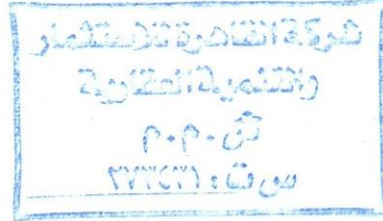 شركة القاهرة للاستثمار
والتنمية العقارية
ش.م.م
س ت :